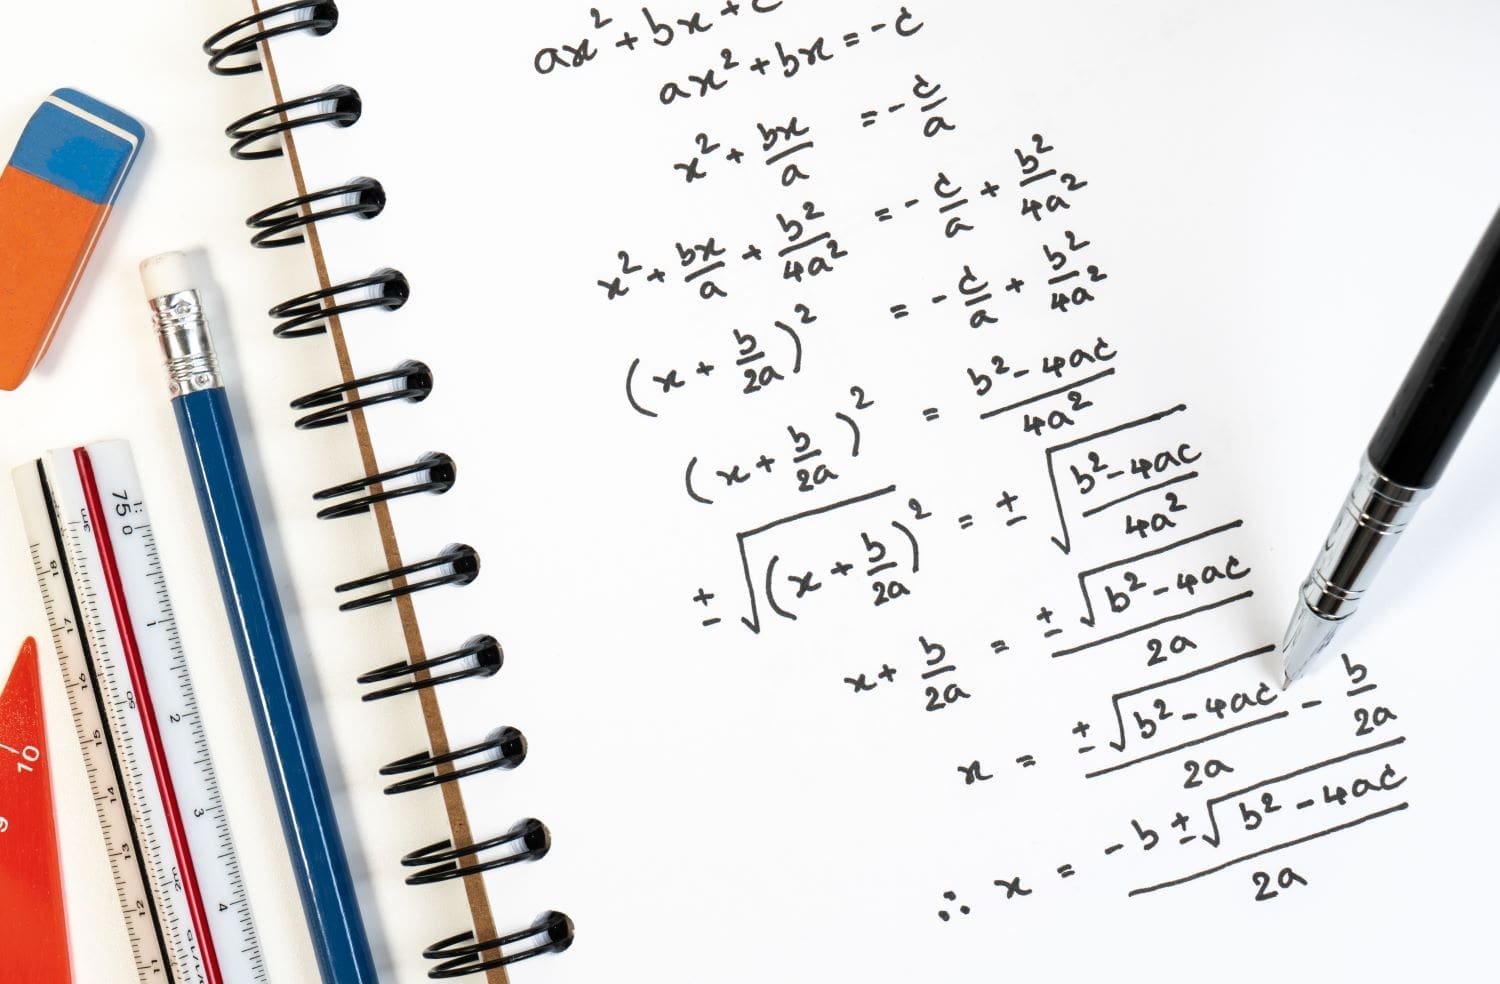 ax² + bx + c
ax² + bx = -c
x² + bx/a = -c/a
x² + bx/a + b²/4a² = -c/a + b²/4a²
(x + b/2a)² = -c/a + b²/4a²
(x + b/2a)² = b² - 4ac/4a²
± √(x + b/2a)² = ± √b² - 4ac/4a²
x + b/2a = ± √b² - 4ac/2a
x = ± √b² - 4ac/2a - b/2a
∴ x = -b ± √b² - 4ac/2a
1:
75 0
3m
1
50
2
3
2m
4
18
17
16
15
14
13
12
11
10
9